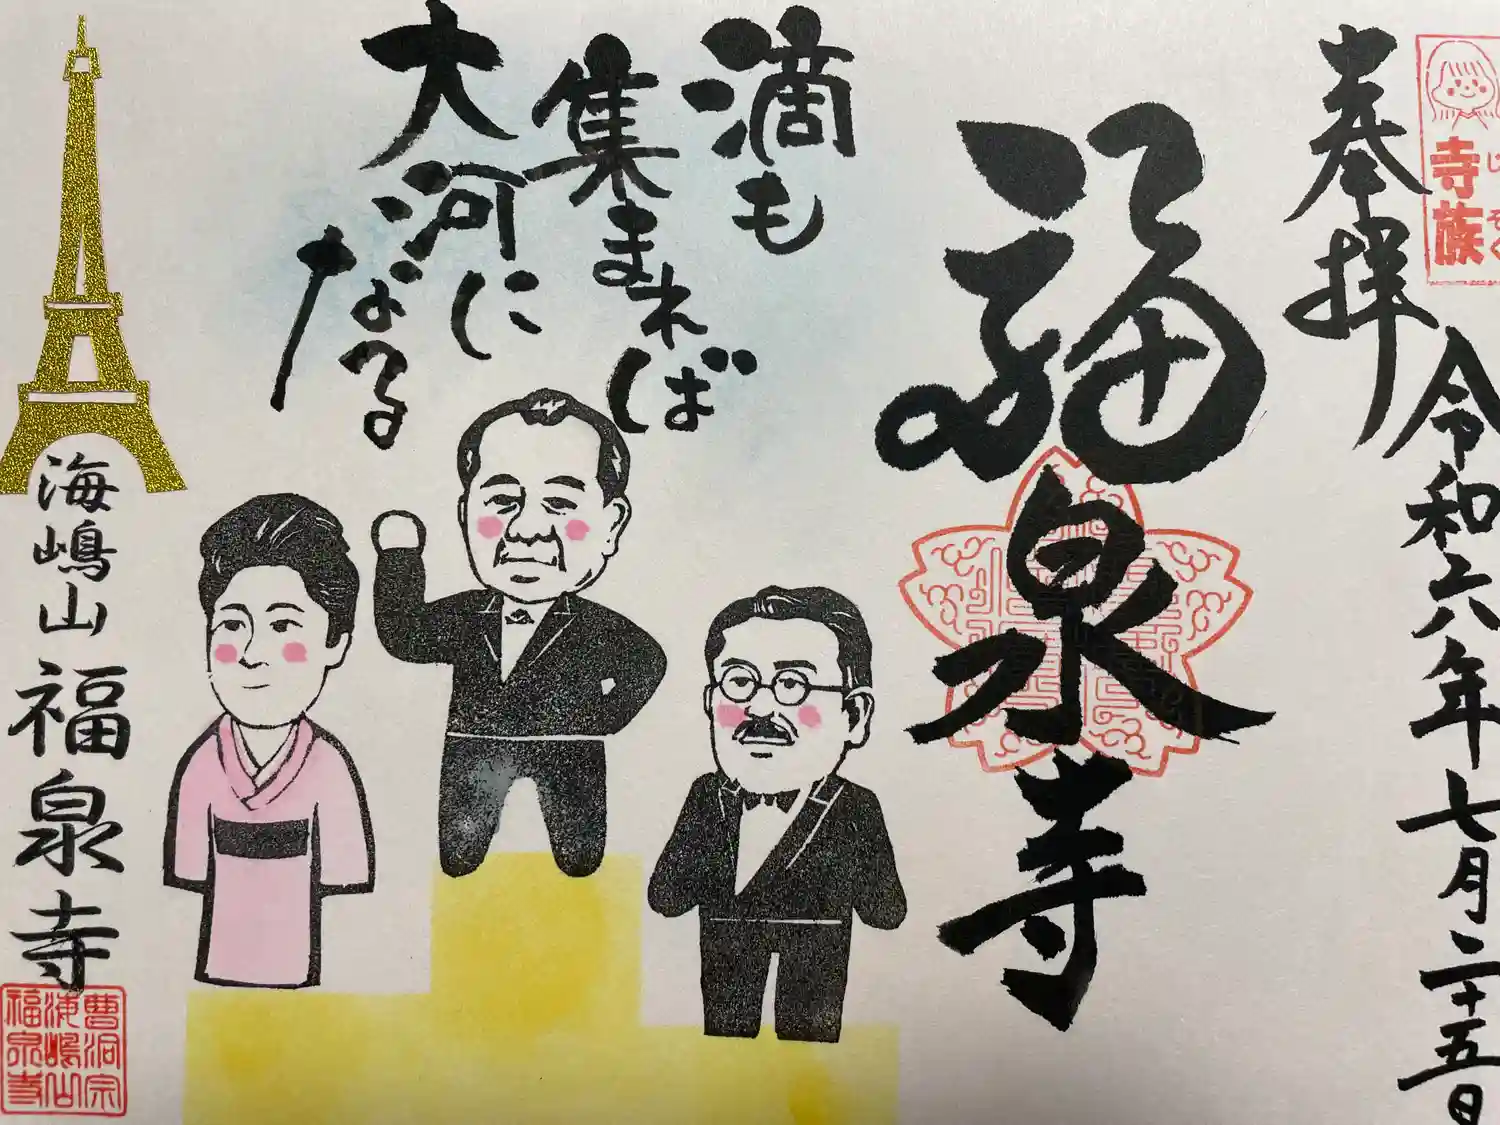 奉拝
令和六年七月二十五日
じぞく
寺族
福泉寺
滴も
集まれば
大河に
なる
海嶋山
福泉寺
曹洞宗
海嶋山
福泉寺